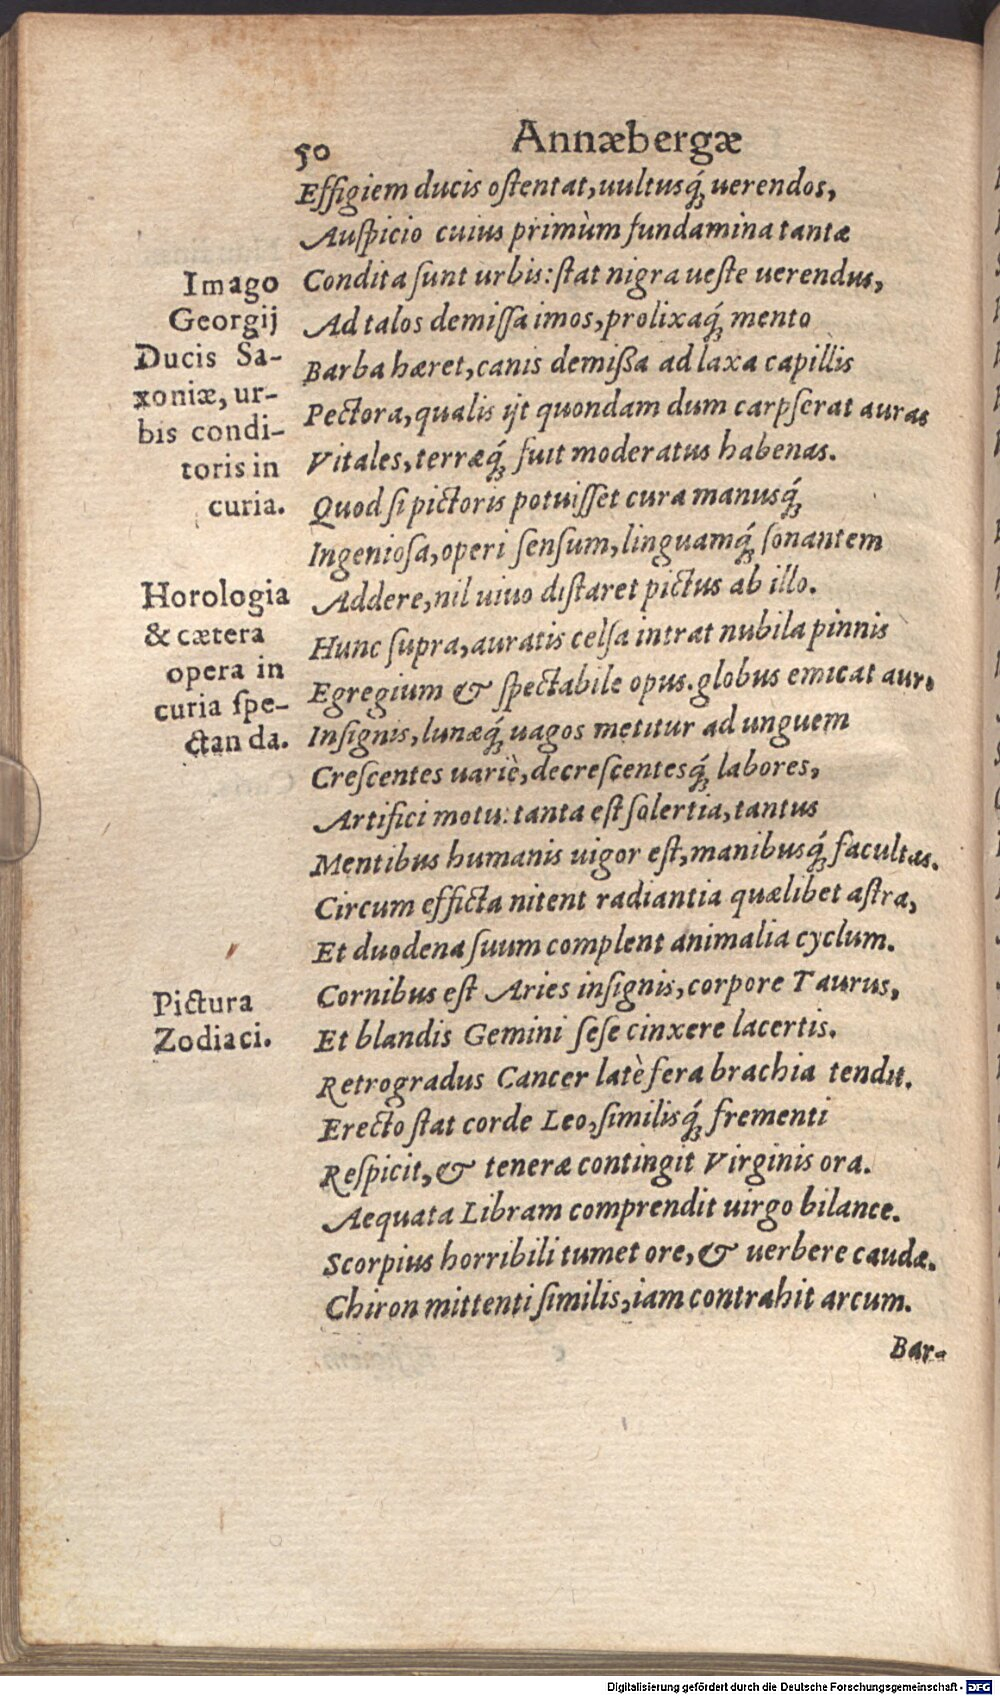 50 Annæbergæ
Effigiem ducis ostentat, uultusq́; uerendos,
Auspicio cuius primùm fundamina tantæ
Condita sunt urbis: stat nigra ueste uerendus,
Ad talos demissa imos, prolixaq́; mento
Barba hæret, canis demißa ad laxa capillis
Pectora, qualis ijt quondam dum carpserat auras
Vitales, terræq́; fuit moderatus habenas.
Quod si pictoris potuisset cura manusq́;
Ingeniosa, operi sensum, linguamq́; sonantem
Addere, nil uiuo distaret pictus ab illo.
Hunc supra, auratis celsa intrat nubila pinnis
Egregium & spectabile opus. globus emicat auro
Insignis, lunæq́; uagos metitur ad unguem
Crescentes uariè, decrescentesq́; labores,
Artifici motu: tanta est solertia, tantus
Mentibus humanis uigor est, manibusq́; facultas.
Circum efficta nitent radiantia quælibet astra,
Et duodena suum complent animalia cyclum.
Cornibus est Aries insignis, corpore Taurus,
Et blandis Gemini sese cinxere lacertis.
Retrogradus Cancer latè fera brachia tendit.
Erecto stat corde Leo, similisq́; frementi
Respicit, & teneræ contingit Virginis ora.
Aequata Libram comprendit uirgo bilance.
Scorpius horribili tumet ore, & uerbere caudæ.
Chiron mittenti similis, iam contrahit arcum.
Bar-
Imago
Georgij
Ducis Sa-
xoniæ, ur-
bis condi-
toris in
curia.
Horologia
& cætera
opera in
curia spe-
ctanda.
Pictura
Zodiaci.
Digitalisierung gefördert durch die Deutsche Forschungsgemeinschaft - DFG